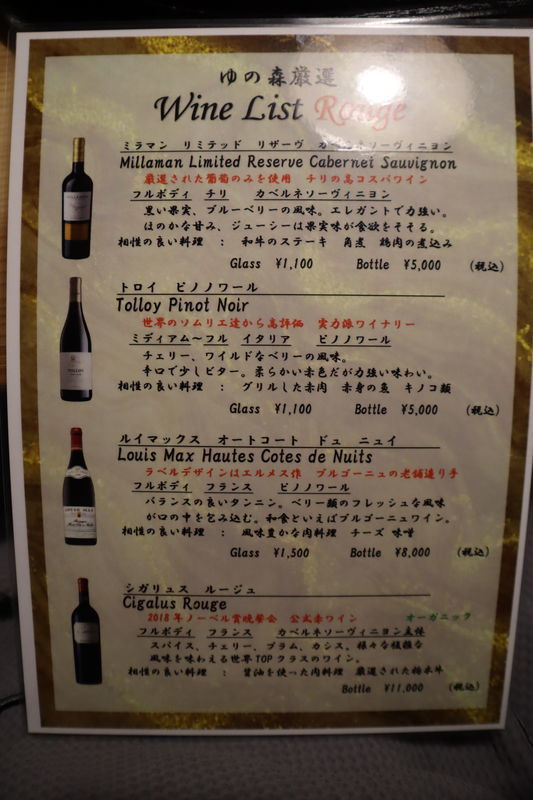 ゆの森厳選
Wine List Rouge
ミラマン リミテッド リザーヴ カベルネソーヴィニヨン
Millaman Limited Reserve Cabernet Sauvignon
厳選された葡萄のみを使用 チリの高コスパワイン
フルボディ チリ カベルネソーヴィニヨン
黒い果実、ブルーベリーの風味。エレガントで力強い。
ほのかな甘み、ジューシーは果実味が食欲をそそる。
相性の良い料理 : 和牛のステーキ 角煮 鶏肉の煮込み
Glass ¥1,100 Bottle ¥5,000 (税込)
トロイ ピノノワール
Tolloy Pinot Noir
世界のソムリエ達から高評価 実力派ワイナリー
ミディアム〜フル イタリア ピノノワール
チェリー、ワイルドなベリーの風味。
辛口で少しビター。柔らかい赤色だが力強い味わい。
相性の良い料理 : グリルした赤肉 赤身の魚 キノコ類
Glass ¥1,100 Bottle ¥5,000 (税込)
ルイマックス オートコート ドュ ニュイ
Louis Max Hautes Cotes de Nuits
ラベルデザインはエルメス作 ブルゴーニュの老舗造り手
フルボディ フランス ピノノワール
バランスの良いタンニン。ベリー類のフレッシュな風味
が口の中を包み込む。和食といえばブルゴーニュワイン。
相性の良い料理 : 風味豊かな肉料理 チーズ 味噌
Glass ¥1,500 Bottle ¥8,000 (税込)
シガリュス ルージュ
Cigalus Rouge
2018年ノーベル賞晩餐会 公式赤ワイン オーガニック
フルボディ フランス カベルネソーヴィニヨン主体
スパイス、チェリー、プラム、カシス。様々な複雑な
風味を味わえる世界TOPクラスのワイン。
相性の良い料理 : 醤油を使った肉料理 厳選された栃木牛
Bottle ¥11,000 (税込)